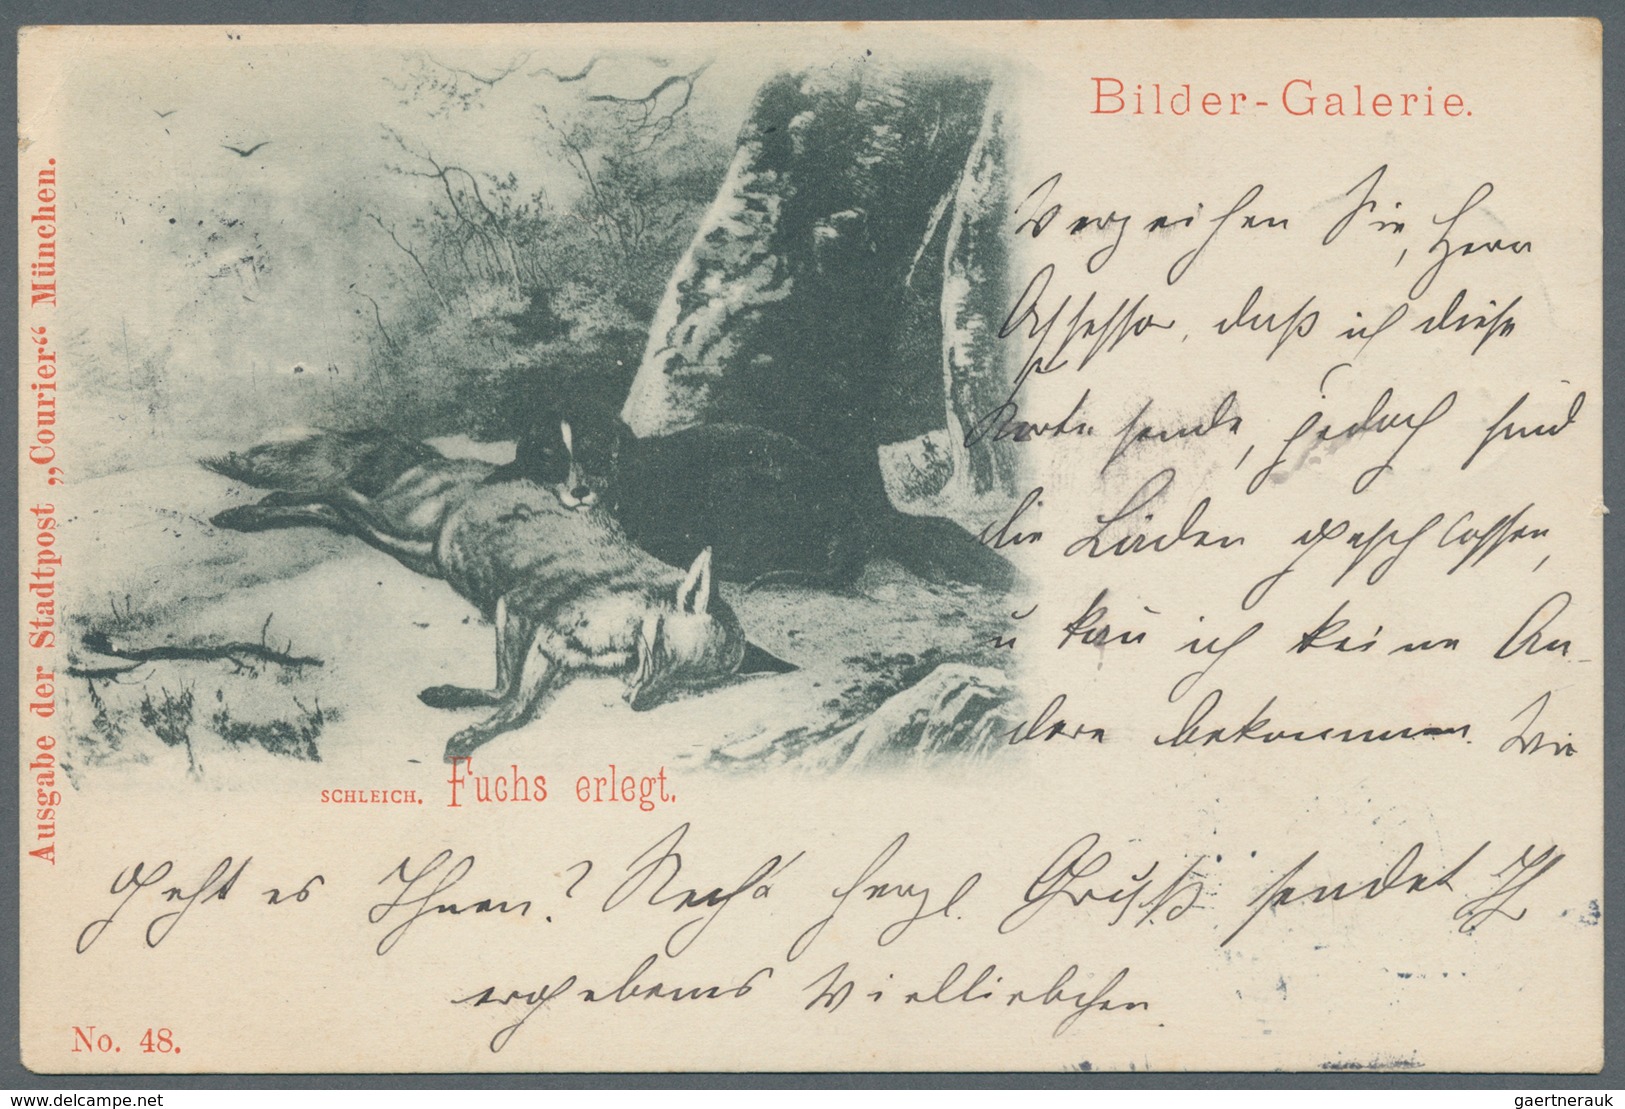 Bilder-Galerie.
Verzeihen Sie, Herr
Assessor, daß ich diese
Karte sende, jedoch sind
die Läden geschlossen,
u kan̄ ich keine An-
dere bekommen. Wie
geht es Ihnen? Recht herzl. Gruß sendet Ih
ergebenes Vielliebchen.
SCHLEICH. Fuchs erlegt.
Ausgabe der Stadtpost „Courier“ München.
No. 48.
www.delcampe.net
gaertnerauk